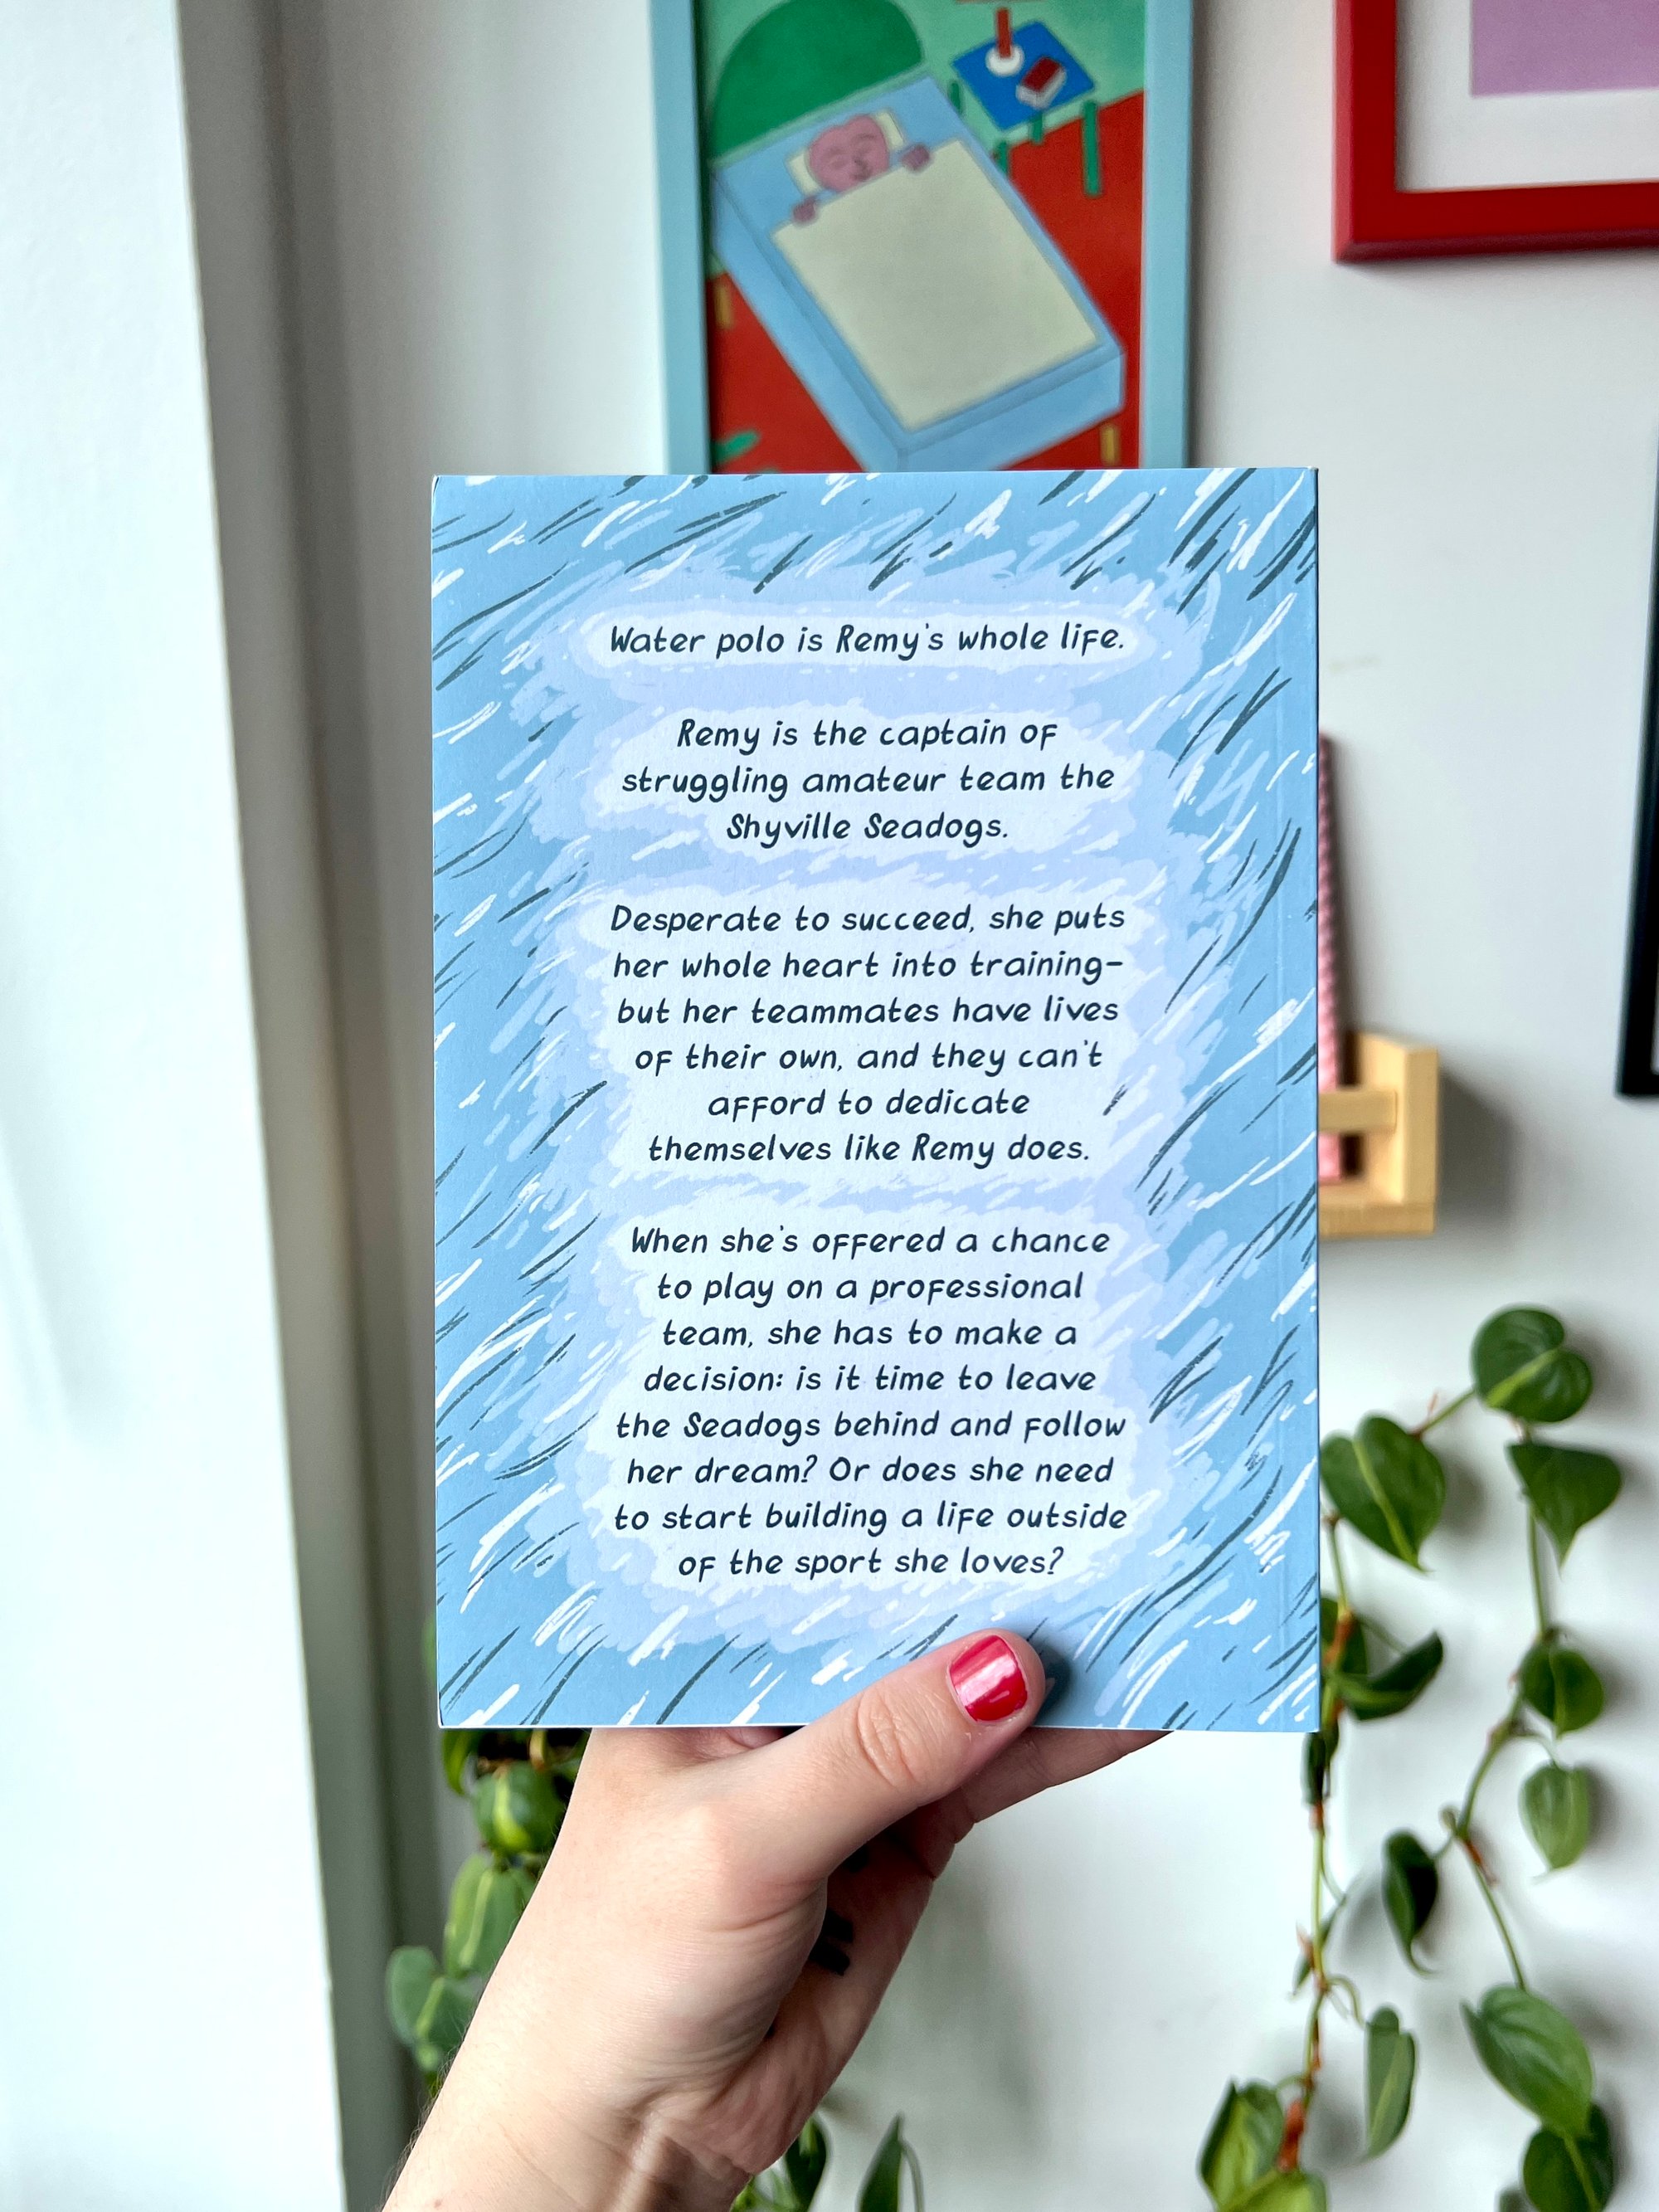 Water polo is Remy's whole life.
Remy is the captain of
struggling amateur team the
Shyville Seadogs.
Desperate to succeed, she puts
her whole heart into training-
but her teammates have lives
of their own, and they can't
afford to dedicate
themselves like Remy does.
When she's offered a chance
to play on a professional
team, she has to make a
decision: is it time to leave
the Seadogs behind and follow
her dream? Or does she need
to start building a life outside
of the sport she loves?